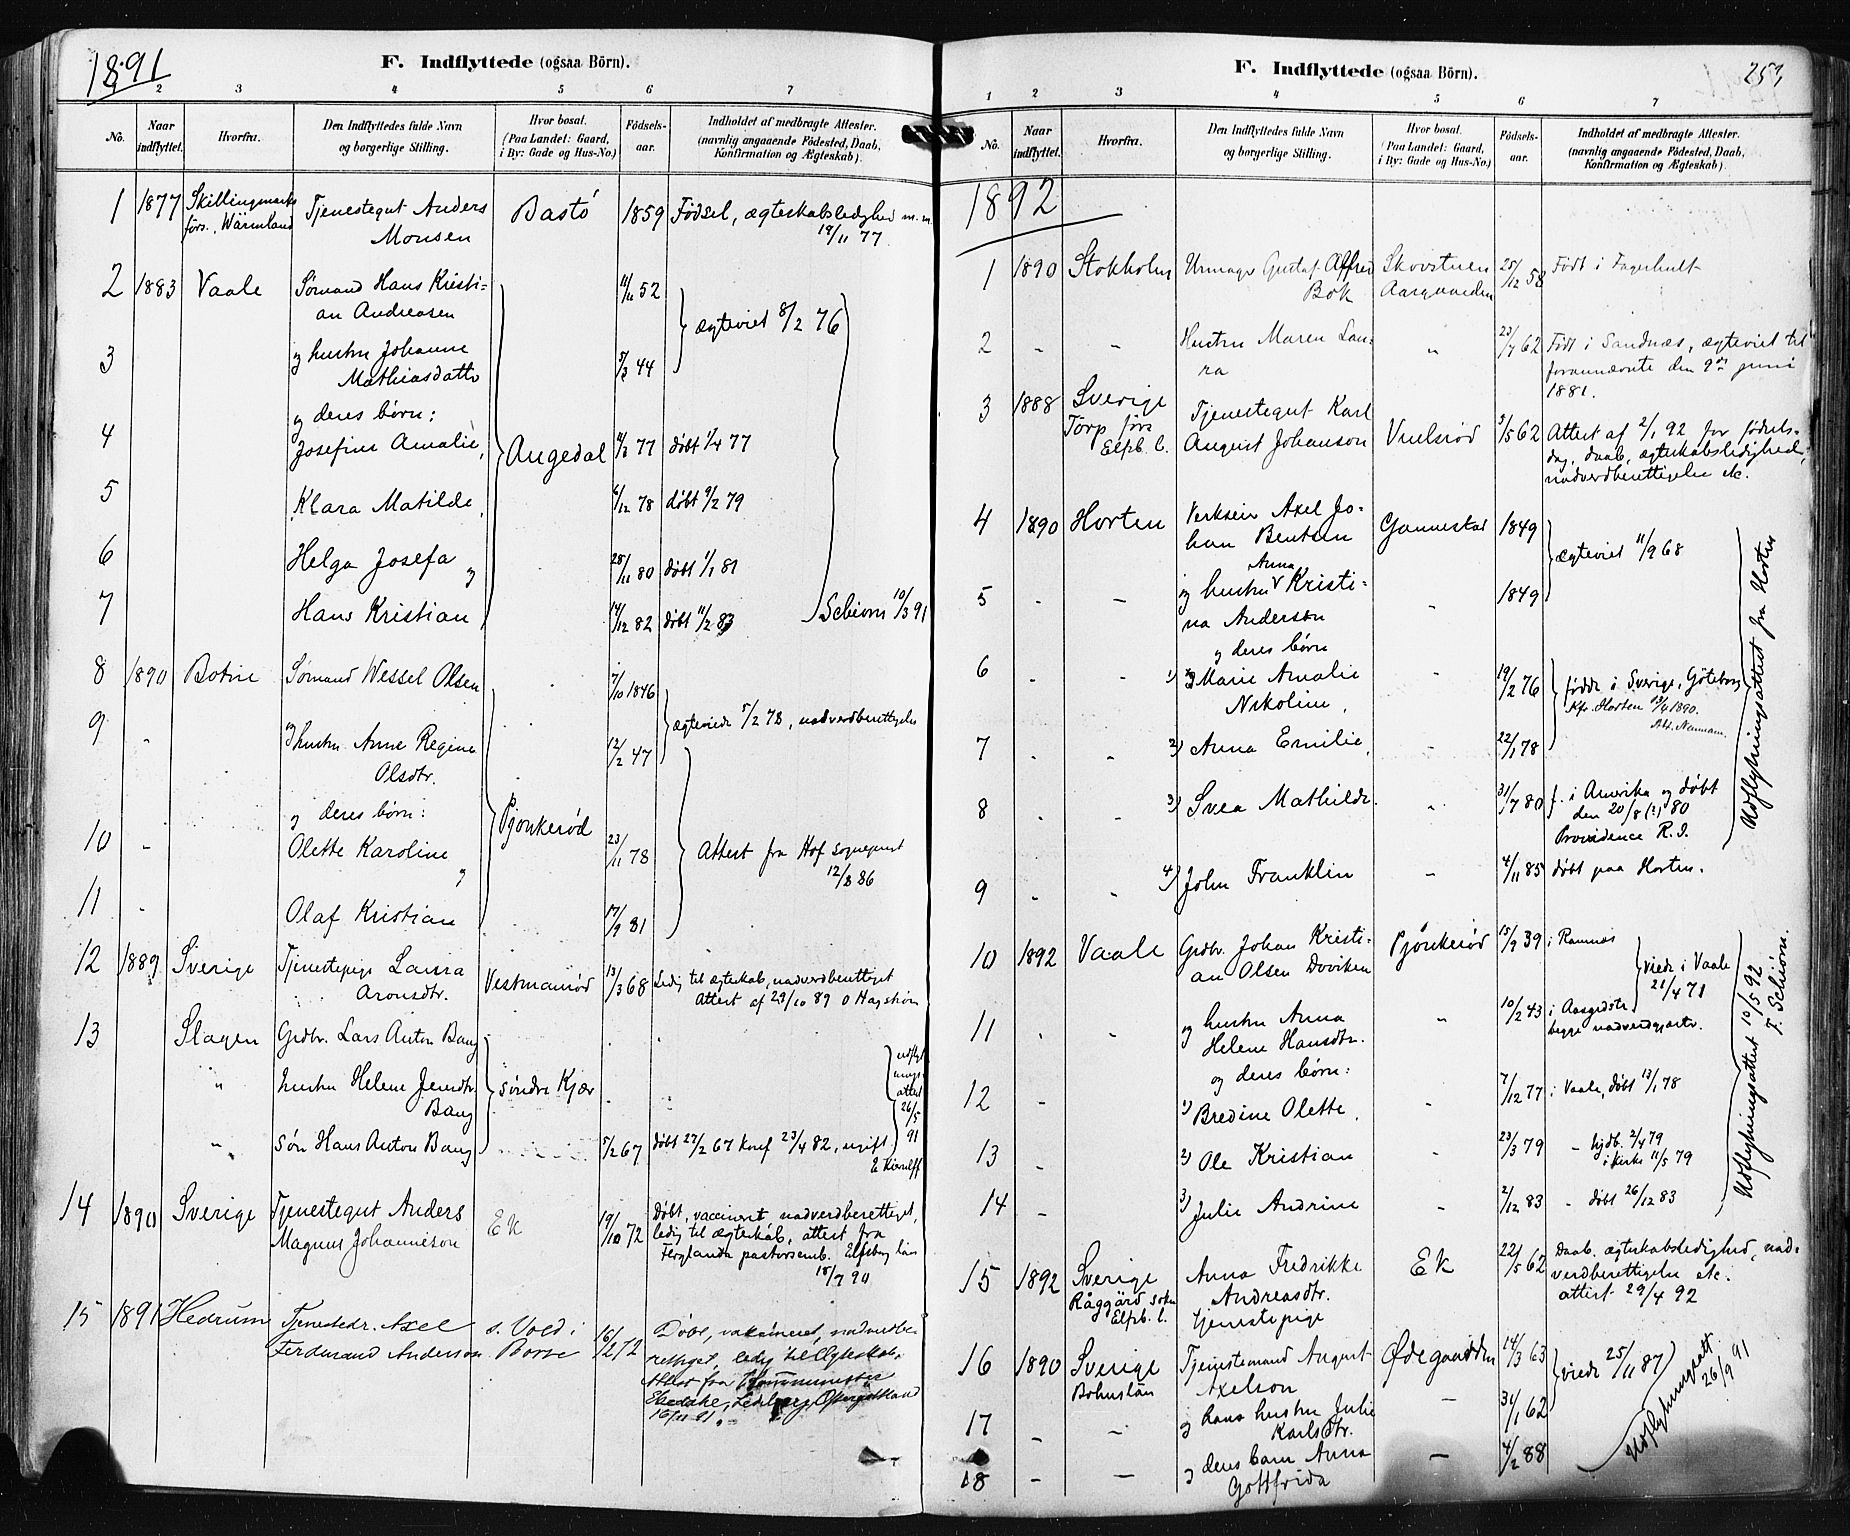 1891
F. Indflyttede (ogsaa Börn).
2 3 4 5 6 7
No.
Naar indflyttet.
Hvorfra.
Den Indflyttedes fulde Navn og borgerlige Stilling.
Hvor bosat. (Paa Landet: Gaard, i By: Gade og Hus-No.)
Födsels-aar.
Indholdet af medbragte Attester. (navnlig angaaende Födested, Daab, Konfirmation og Ægteskab).
1 1877 Skillingmarks Tjenestegut Anders Bastö 1859 Födsel, ægteskabsledighed m.m.
förs., Wärmland Monsen 19/11 77.
2 1883 Vaale Sömand Hans Kristi- 11/11 52
an Andreasen ægteviet 8/2 76
3 og hustru Johanne 5/3 44
Mathiasdattr
og deres börn:
4 Josefine Amalie, Augedal 77 döbt 1/4 77
5 Klara Matilde, 6/12 78 döbt 9/2 79
6 Helga Josefa og 28/11 80 döbt 1/1 81
7 Hans Kristian 14/12 82 döbt 11/2 83 Schiorn 10/3 91
8 1890 Botne Sömand Wessel Olsen 7/10 1846
ægteviede 5/2 78, nadverdberettigede
9 - og hustru Anne Regine 12/2 47
Olsdtr.
og deres börn: Pjonkeröd
10 - Olette Karoline og 23/11 78 Attest fra Hof sogneprest
12/8 86
11 - Olaf Kristian 17/9 81
12 1889 Sverige Tjenestepige Laura Vestmanröd 13/3 68 Ledig til ægteskab, nadverdberettiget
Aronsdtr. Attest af 23/10 89 O Hagström
13 Slagen Grdbr. Lars Anton Bang
" hustru Helene Jensdtr. söndre Kjær
Bang
" sön Hans Anton Bang 5/2 67 döbt 27/2 67 konf 23/4 82, ugift
udflyt
nings
attest
26/5
91
14 1890 Sverige Tjenestegut Anders Ek 19/10 72 Döbt, vaccineret, nadverdberettiget,
Magnus Johanneson ledig til ægteskab, attest fra
Ferglanda pastorsemb. Elfsborg län
18/7 90
15 1891 Hedrum Tjenestedr. Axel s. Vold i 16/2 72 Döbt, vaksineret, nadverdbe-
Ferdinand Anderson Borre rettiget, ledig til Ægteskab.
Attest fra Kommunister
Ledberg, Östergötland
16/11 91.
F. Indflyttede (ogsaa Börn).
253
1 2 3 4 5 6 7
No.
Naar indflyttet.
Hvorfra.
Den Indflyttedes fulde Navn og borgerlige Stilling.
Hvor bosat. (Paa Landet: Gaard, i By: Gade og Hus-No.)
Födsels-aar.
Indholdet af medbragte Attester. (navnlig angaaende Födested, Daab, Konfirmation og Ægteskab).
1892
1 1890 Stokholm Urmager Gustaf Alfred Skovstuen 25/12 58 Födt i Fagerhult
Bok Aasgaarden
2 - - Hustru Maren Lau- " 23/7 62 Födt i Sandnæs, ægteviet til
ra forannævnte den 2den juni
1881.
3 1888 Sverige Tjenestegut Karl
Törp förs August Johanson Vulsröd 3/5 62 Attest af 2/1 92 for födsels-
Elfsb. l. dag, daab, ægteskabsledighed,
nadverdberettigelse etc.
4 1890 Horten Verkseier Axel Jo- Gannestad 1849
han Bentsen ægteviet 11/9 68
Anna
5 - - og hustru Kristi- " 1849
na Anderson
og deres börn
6 - - 1) Marie Amalie - 19/2 76 födde i Sverige, Göteborg
Nikoline, Kfr. Horten 1890.
7 - - 2) Anna Emilie, - 22/1 78
8 - - 3) Svea Mathilde " 31/7 80 f. i Amerika og döbt
den 20/8 (?) 80
Providence R.I.
9 - - 4) John Franklin - 4/11 85 döbt paa Horten.
Udflytningsattest fra Horten
10 1892 Vaale Grdbr. Johan Kristi- Pjönkeröd 15/9 39 i Ramnæs
an Olsen Dviken viede i Vaale
21/4 71
11 - - og hustru Anna " 10/2 43 i Aasgdstr.
Helene Hansdtr. begge nadverdgjæster.
og deres börn:
12 - 1) Bredine Olette, - 7/12 77 i Vaale, döbt 13/1 78
13 - 2) Ole Kristian 23/3 79 - hjdb. 2/4 79
i kirke 11/5 79
14 - 3) Julie Andrine 2/12 83 - döbt 26/12 83
Udflytningsattest 10/5 92
F. Schiörn.
15 1892 Sverige Anna Fredrikke Ek 22/5 62 Daab, ægteskabsledighed, nad-
Råggärd sokn Andreasdtr. verdberettigelse etc.
Elfsb. l. tjenestepige attest 29/4 92
16 1890 Sverige Tjenestemand August Ödegaarden 14/3 63
Bohuslän Axelson viede 25/11 87
17 - - og hans hustru Julie - 31/1 62
Karlsdtr.
18 - - og deres barn Anna - 4/2 88
Gottfrida
Udflytningsatt.
26/9 91